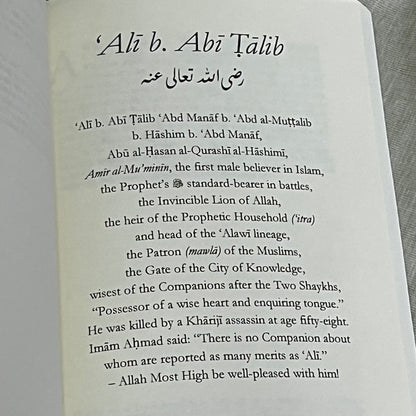 ‘Alī b. Abī Ṭālib
رضي الله تعالى عنه
‘Alī b. Abī Ṭālib ‘Abd Manāf b. ‘Abd al-Muṭṭalib
b. Hāshim b. ‘Abd Manāf,
Abū al-Ḥasan al-Qurashī al-Hāshimī,
Amīr al-Mu’minīn, the first male believer in Islam,
the Prophet’s ﷺ standard-bearer in battles,
the Invincible Lion of Allah,
the heir of the Prophetic Household (‘itra)
and head of the ‘Alawī lineage,
the Patron (mawlā) of the Muslims,
the Gate of the City of Knowledge,
wisest of the Companions after the Two Shaykhs,
“Possessor of a wise heart and enquiring tongue.”
He was killed by a Khārijī assassin at age fifty-eight.
Imām Aḥmad said: “There is no Companion about
whom are reported as many merits as ‘Alī.”
– Allah Most High be well-pleased with him!